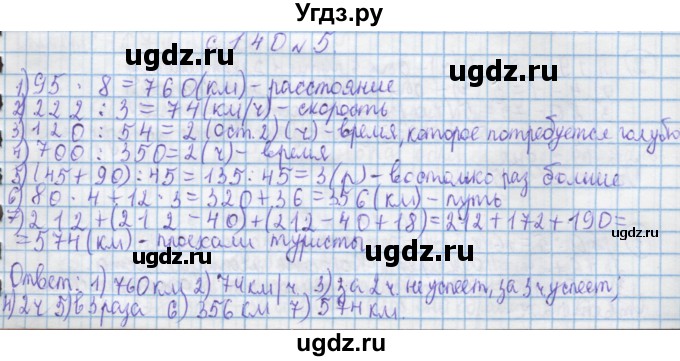 Угдз.ру
с. 140 № 5.
1) 95 · 8 = 760 (км) - расстояние
2) 222 : 3 = 74 (км/ч) - скорость
3) 120 : 54 = 2 (ост. 2) (ч) - время, которое потребуется голубю
4) 700 : 350 = 2 (ч) - время
5) (45 + 90) : 45 = 135 : 45 = 3 (р) - во столько раз больше
6) 80 · 4 + 12 · 3 = 320 + 36 = 356 (км) - путь
7) 212 + (212 - 40) + (212 - 40 + 18) = 212 + 172 + 190 =
= 574 (км) - проехали туристы
Ответ: 1) 760 км 2) 74 км/ч 3) за 2 ч. не успеет, за 3 ч успеет;
4) 2 ч 5) в 3 раза 6) 356 км 7) 574 км.
ugdz.ru
ugdz.ru
ugdz.ru
ugdz.ru
ugdz.ru
ugdz.ru
ugdz.ru
ugdz.ru
ugdz.ru
ugdz.ru
ugdz.ru